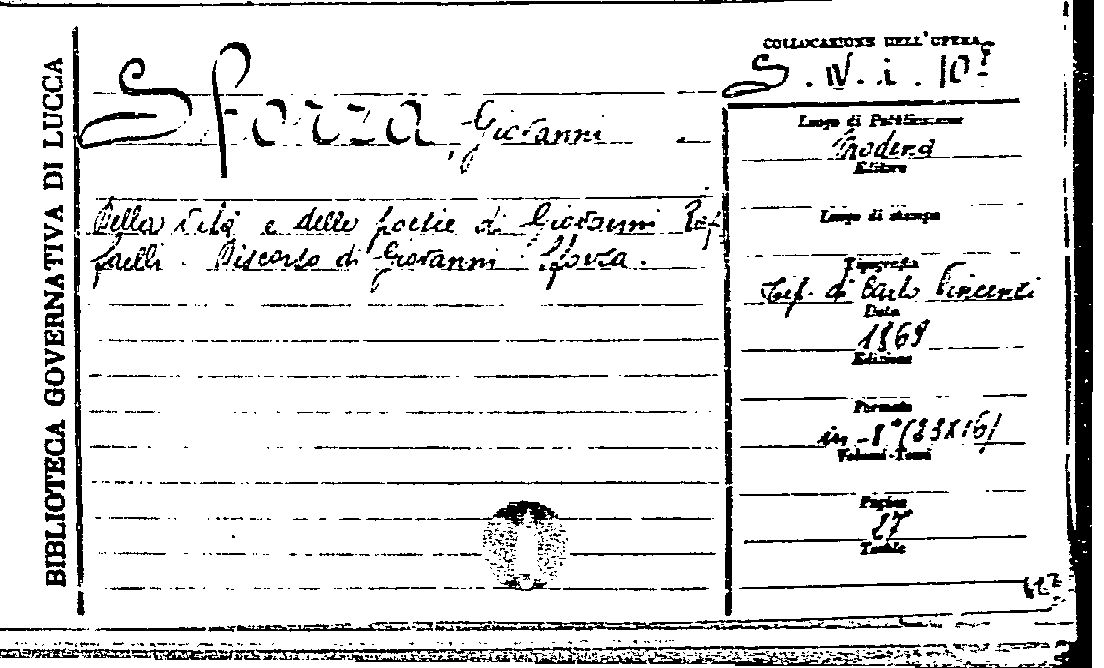 BIBLIOTECA GOVERNATIVA DI LUCCA
Sforza, Giovanni
Della vita e delle poesie di Giovanni Raf
faelli. Discorso di Giovanni Sforza.
COLLOCAZIONE DELL'OPERA
S. IV. i. 10
Luogo di Pubblicazione
Modena
Editore
Luogo di stampa
Tipografia
Tip. di Carlo Vincenzi
Data
1869
Edizione
Formato
in-8° (23X16)
Volumi-Tomi
Pagine
27
Tavole